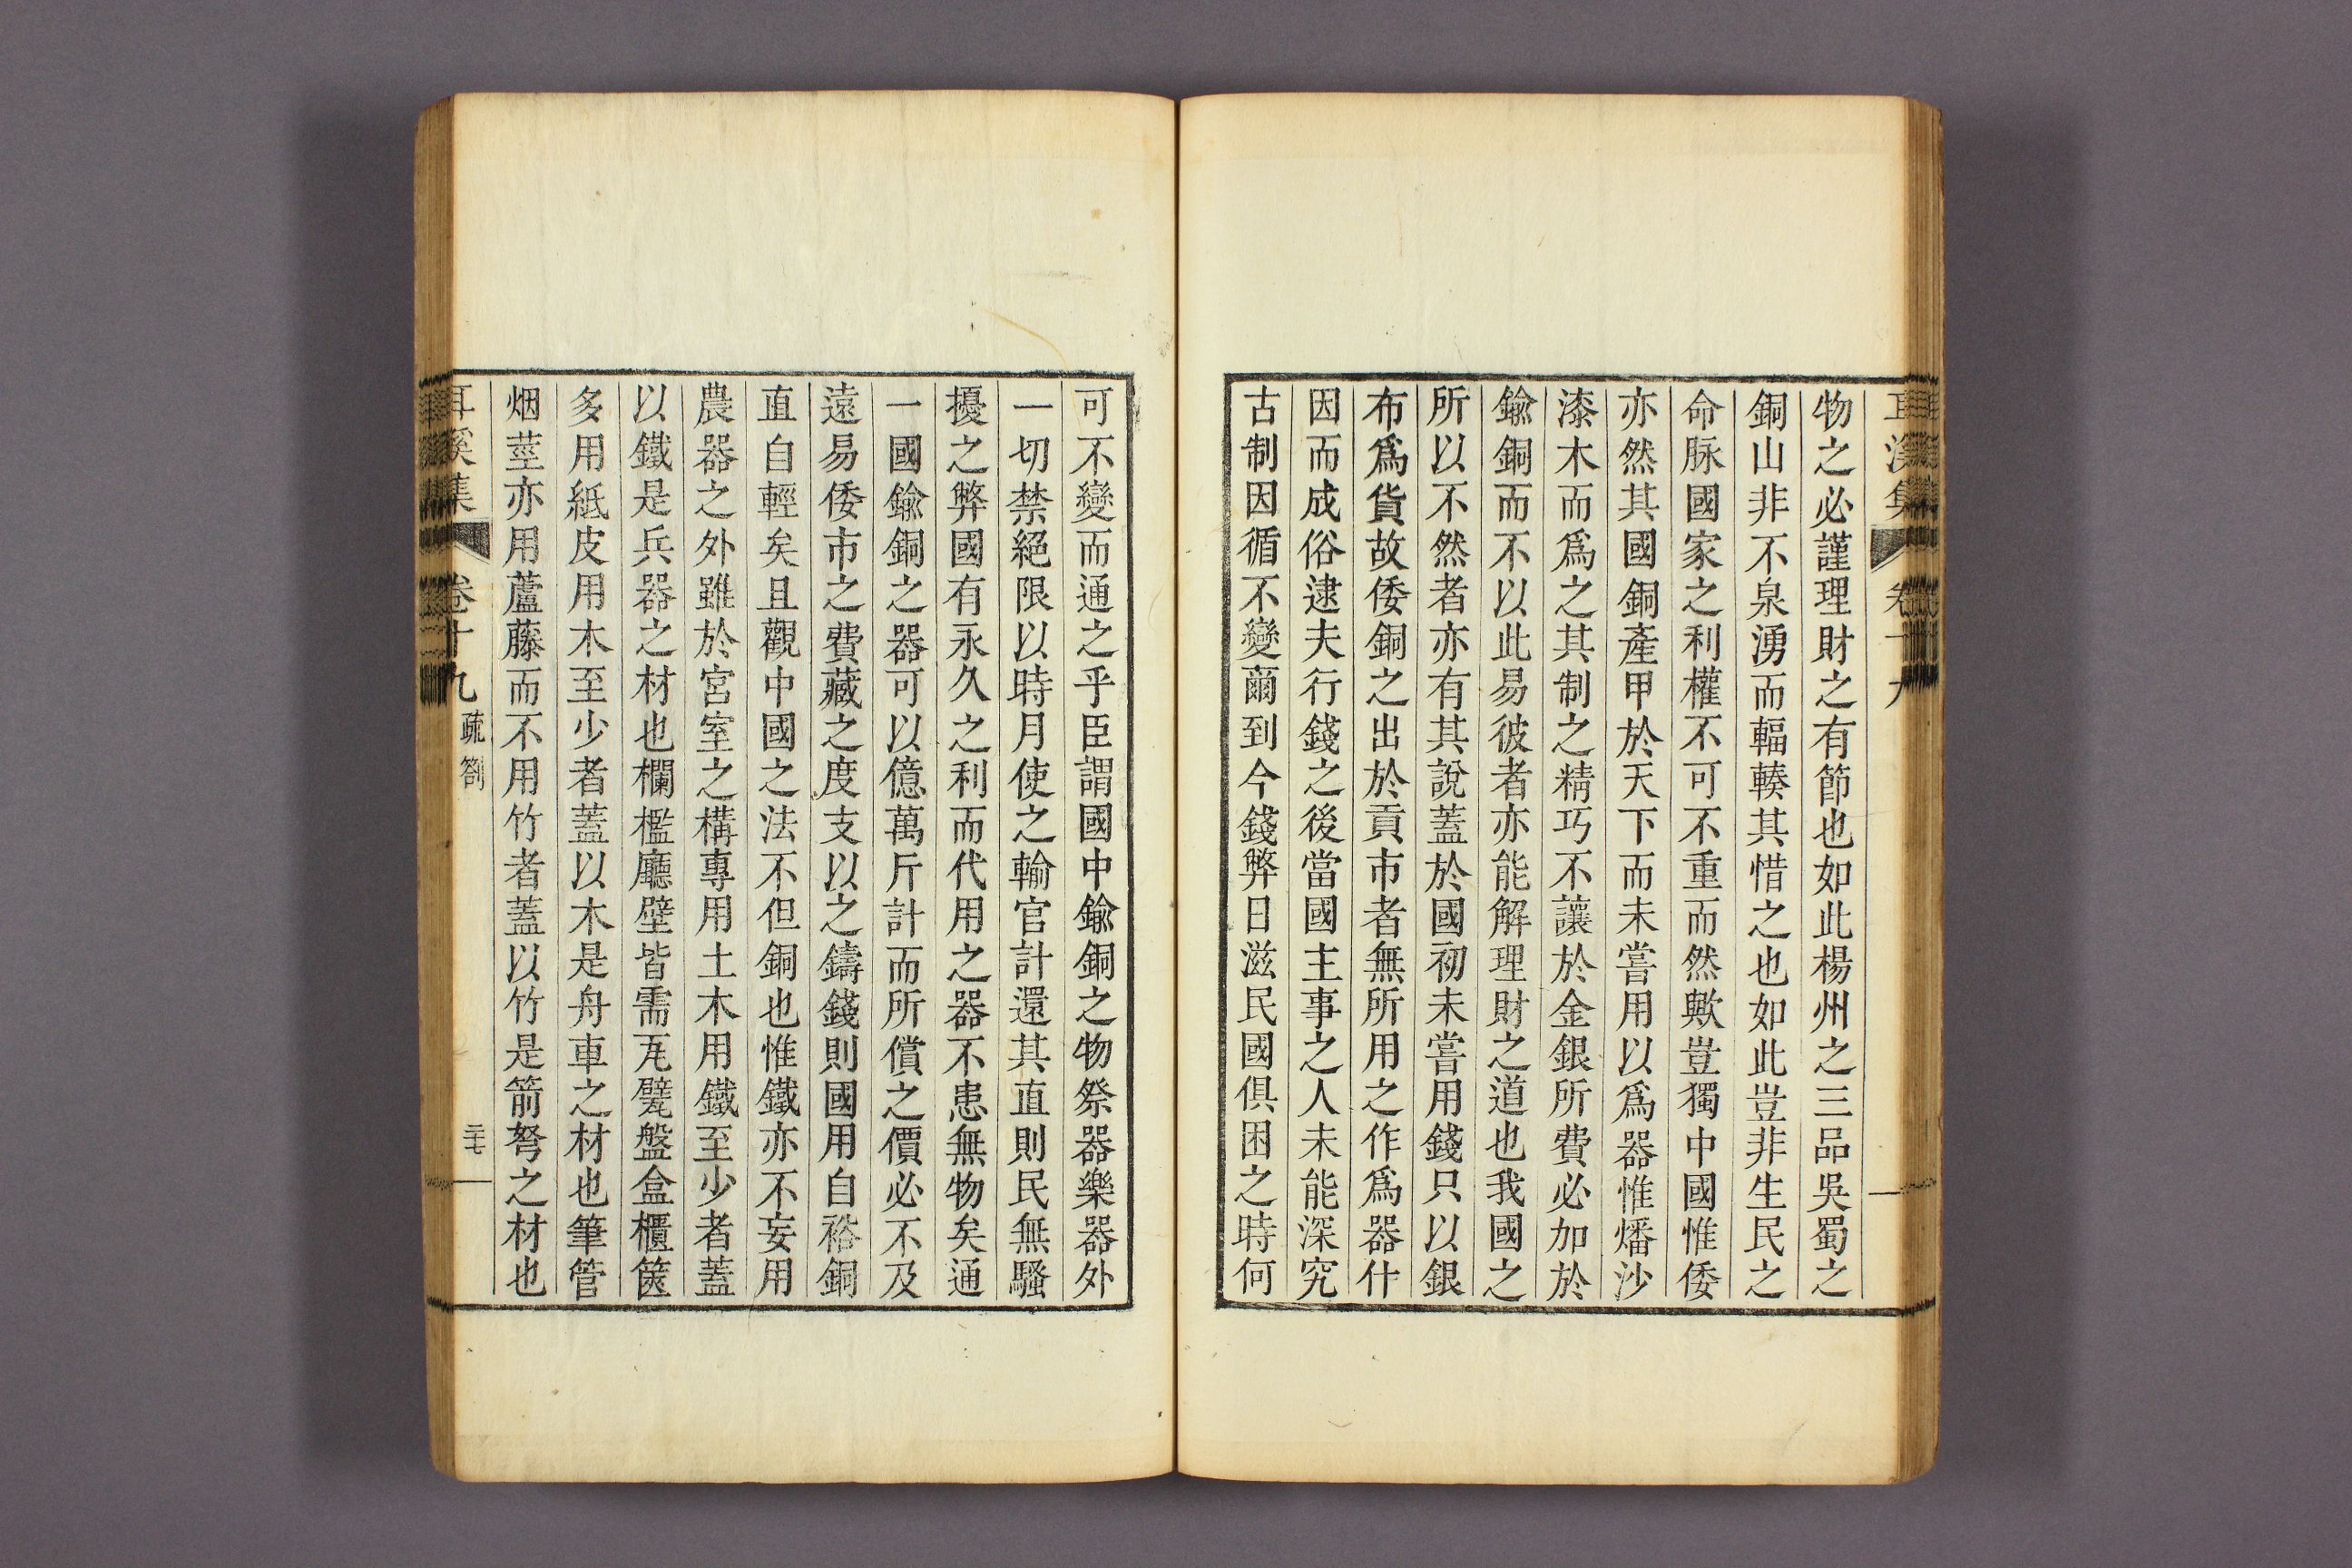 耳溪集 卷十九
物之必謹理財之有節也如此楊州之三品吳蜀之
銅山非不泉湧而輻輳其惜之也如此豈非生民之
命脉國家之利權不可不重而然歟豈獨中國惟倭
亦然其國銅產甲於天下而未嘗用以爲器惟燔沙
漆木而爲之其制之精巧不讓於金銀所費必加於
鍮銅而不以此易彼者亦能解理財之道也我國之
所以不然者亦有其說蓋於國初未嘗用錢只以銀
布爲貨故倭銅之出於貢市者無所用之作爲器什
因而成俗逮夫行錢之後當國主事之人未能深究
古制因循不變爾到今錢弊日滋民國俱困之時何
可不變而通之乎臣謂國中鍮銅之物祭器樂器外
一切禁絕限以時月使之輸官計還其直則民無騷
擾之弊國有永久之利而代用之器不患無物矣通
一國鍮銅之器可以億萬斤計而所償之價必不及
遠易倭市之費藏之度支以之鑄錢則國用自裕銅
直自輕矣且觀中國之法不但銅也惟鐵亦不妄用
農器之外雖於宮室之構專用土木用鐵至少者蓋
以鐵是兵器之材也欄檻廳壁皆需瓦甓盤盒櫃篋
多用紙皮用木至少者蓋以木是舟車之材也筆管
烟莖亦用蘆藤而不用竹者蓋以竹是箭弩之材也
耳溪集 卷十九 疏箚 三十七